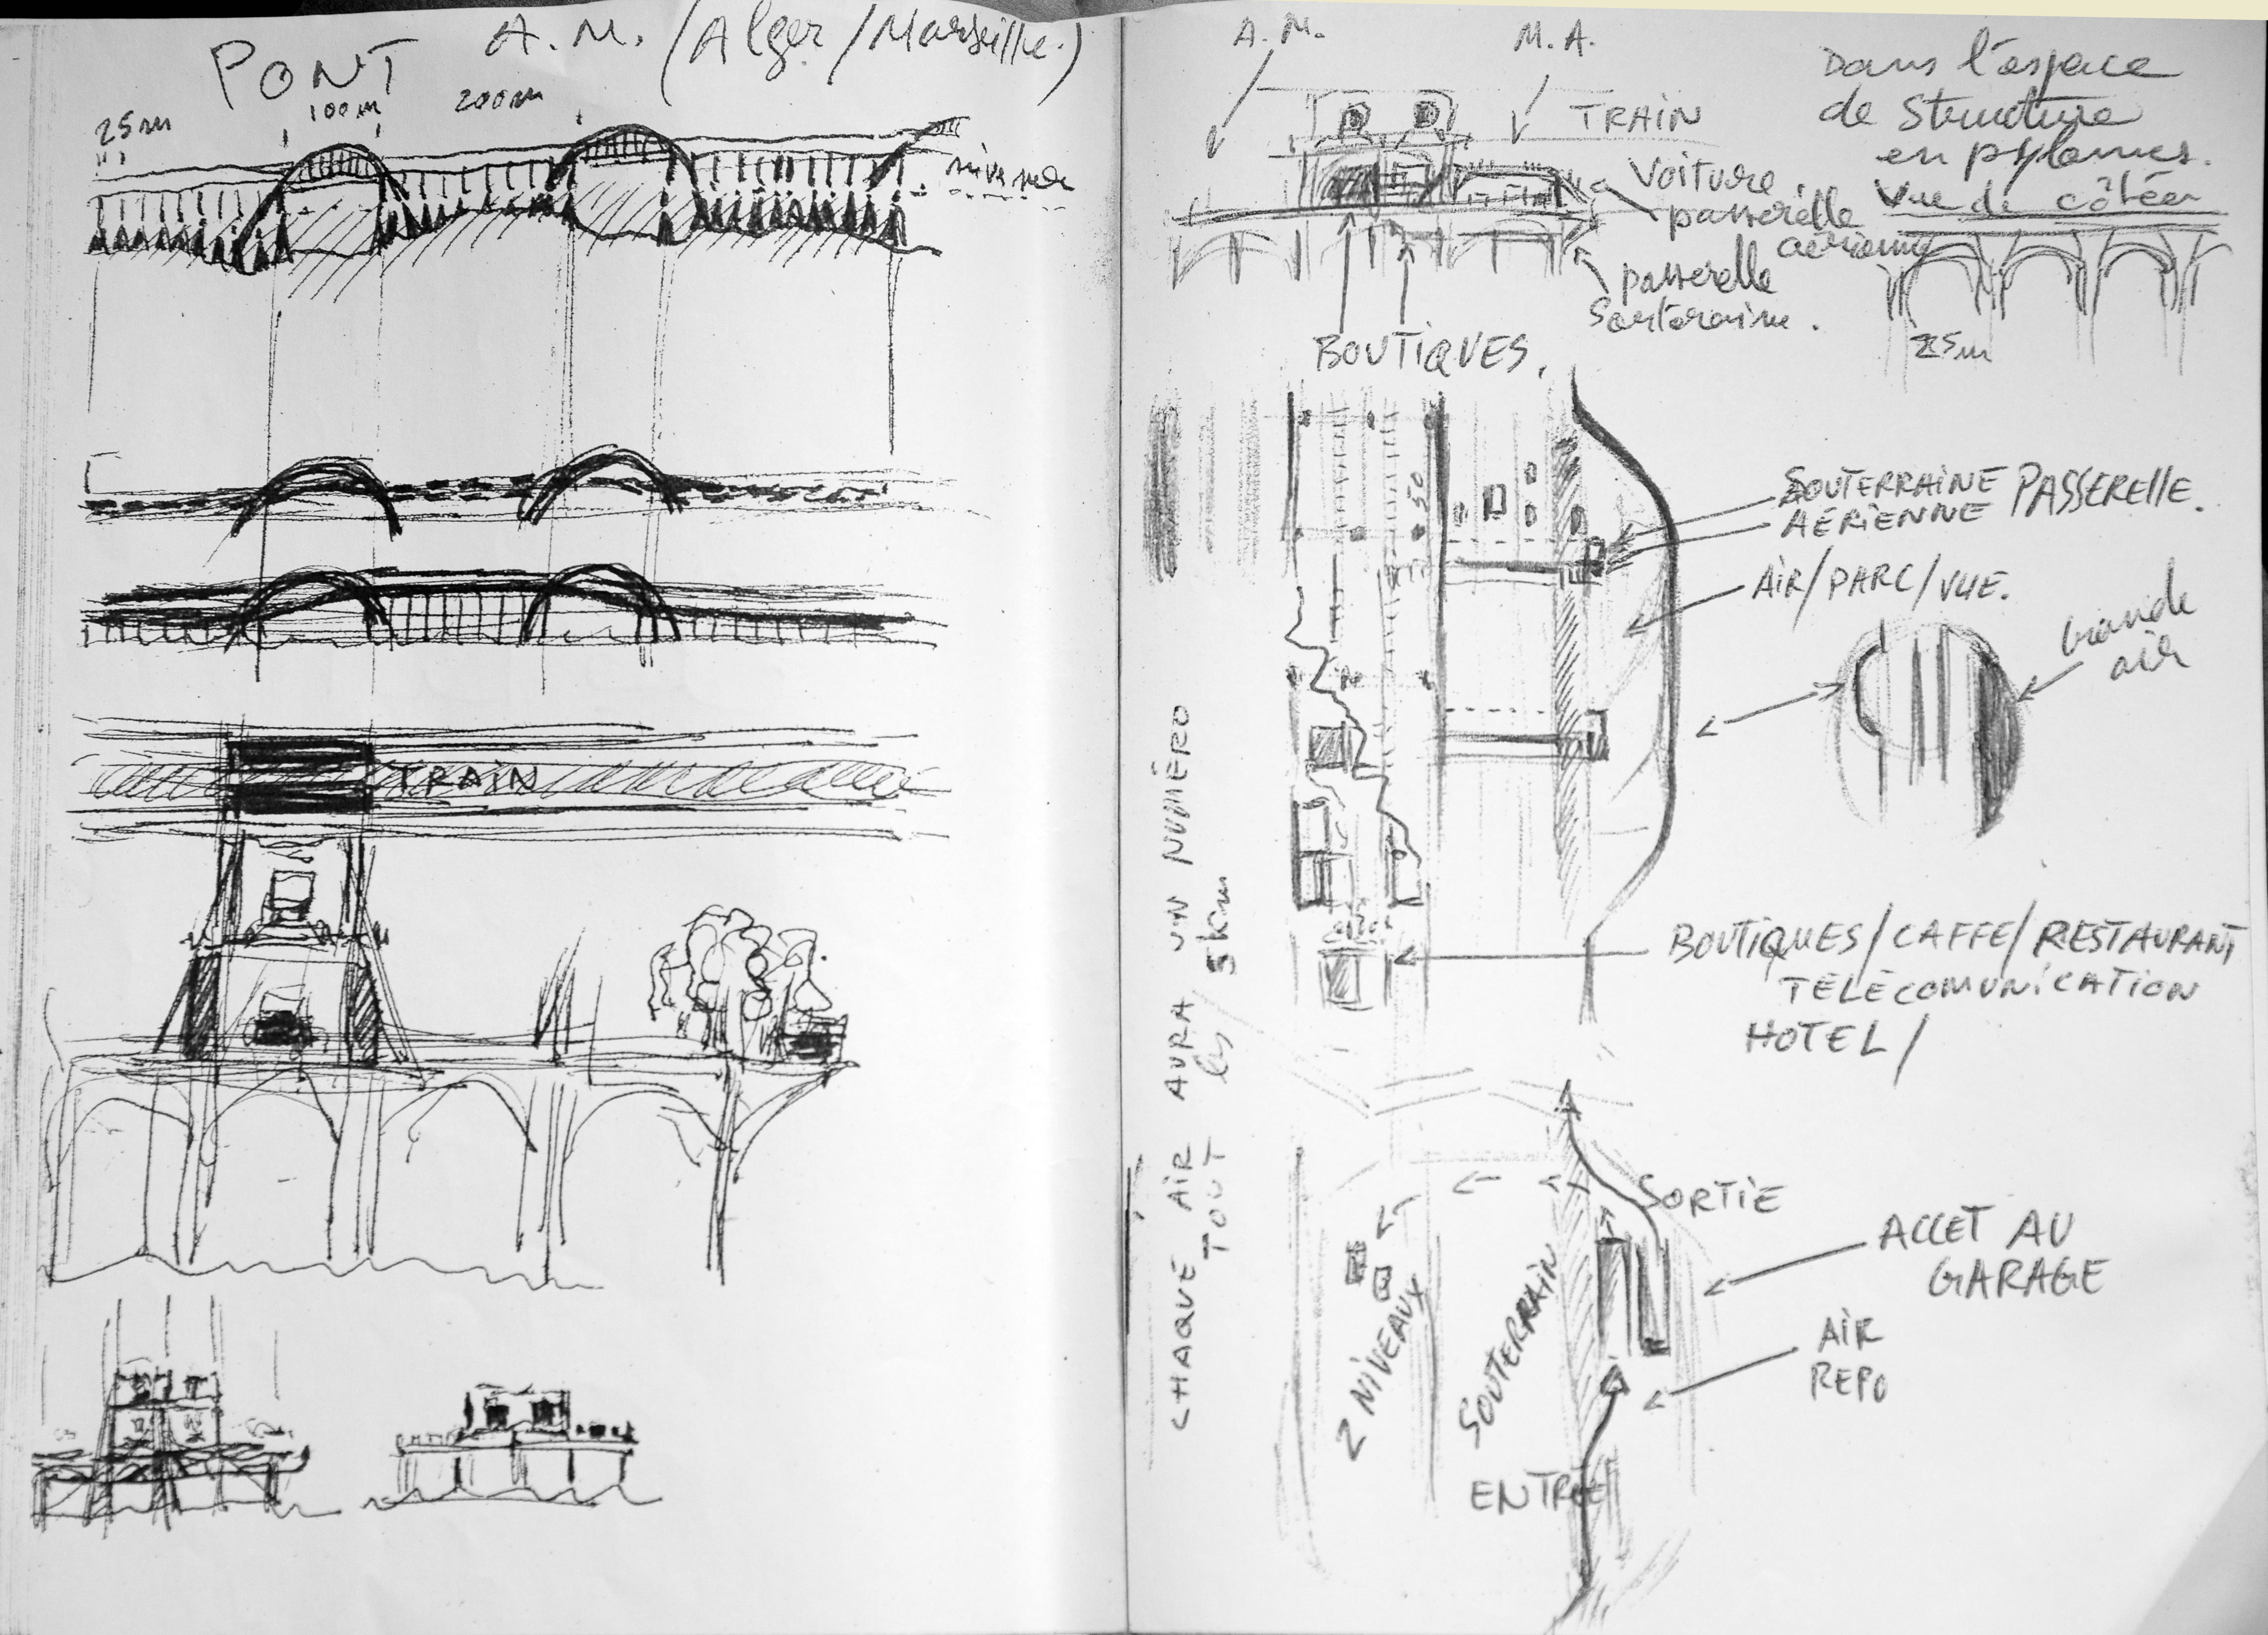 PONT A.M. (Alger/Marseille.)
25m
100m
200m
TRAIN
A.M.
M.A.
TRAIN
Voiture.
passerelle
aérienne
passerelle
Souteraine.
BOUTiQUES.
Dans l'espace
de Structure
en pylames.
Vue de côtéer
25m
50
SOUTERRAiNE PASSERElle.
AÉRiENNE
AiR/PARC/VUE.
Grande
air
BOUTiQUES/CAFFE/RESTAURANT
TELECOMUNiCATiON
HOTEL/
CHAQUE AiR AURA UN NUMÉRO
TOUT les 5km
SORTiE
ACCET AU
GARAGE
AiR
REPO
2 NiVEAUX
SOUTERRAiN
ENTRÉE